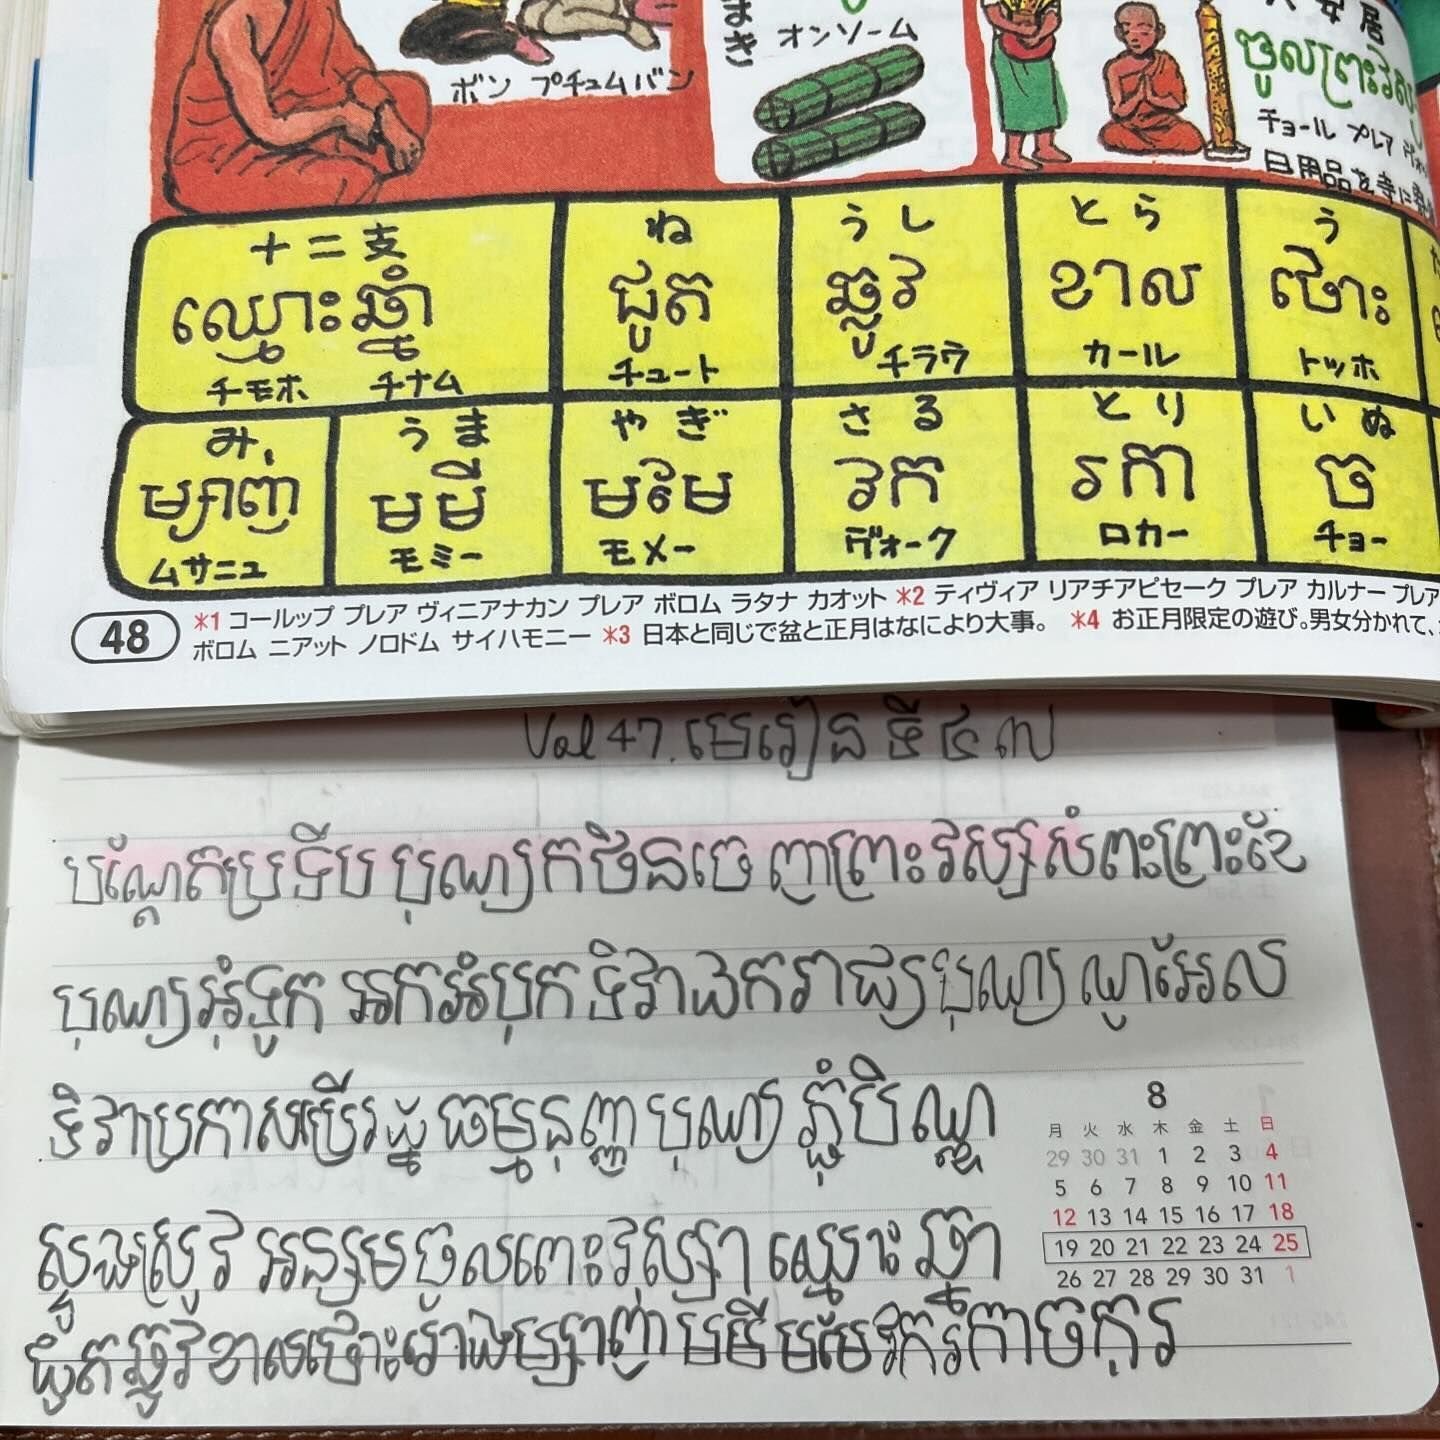 まき
オンソーム
ボン プチュムバン
安居
ចូលព្រះវស្សា
チョール プレア
日用品を寺に
十二支
ឈ្មោះឆ្នាំ
チモホ チナム
ね
ជូត
チュート
うし
ឆ្លូវ
チラウ
とら
ខាល
カール
う
ថោះ
トッホ
み
ម្សាញ់
ムサニュ
うま
មមី
モミー
やぎ
មមែ
モメー
さる
វក
ヴォーク
とり
រកា
ロカー
いぬ
ច
チョー
48
*1 コールップ プレア ヴィニアナカン プレア ボロム ラタナ カオット *2 ティヴィア リアチアピセーク プレア カルナー プレア
ボロム ニアット ノロドム サイハモニー *3 日本と同じで盆と正月はなにより大事。 *4 お正月限定の遊び。男女分かれて、
Vol 47. មេរៀន ទី ៤៧
បណ្ដែតប្រទីប បុណ្យកឋិនចេញព្រះវស្សសំពះព្រះខែ
បុណ្យអុំទូក អកអំបុក ទិវាឯករាជ្យ បុណ្យណូអែល
ទិវាប្រកាសប្រើរដ្ឋធម្មនុញ្ញ បុណ្យភ្ជុំបិណ្ឌ
ស្ទូងស្រូវ អន្សម ចូលព្រះវស្សា ឈ្មោះ ឆ្នាំ
ជូតឆ្លូវខាលថោះរោងម្សាញ់មមីមមែវករកាចកុរ
8
月 火 水 木 金 土 日
29 30 31 1 2 3 4
5 6 7 8 9 10 11
12 13 14 15 16 17 18
19 20 21 22 23 24 25
26 27 28 29 30 31 1